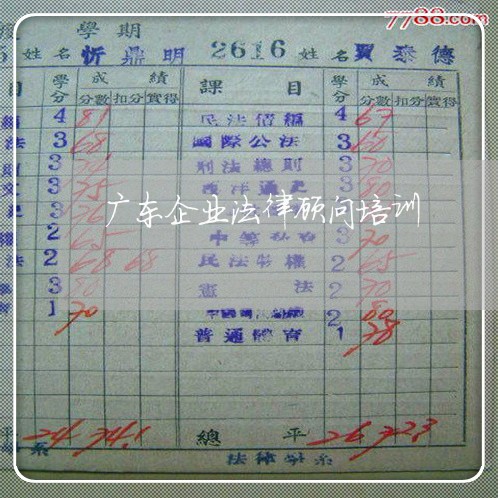 7788.com
學期
姓名 忻鼎明 2616 姓名 賈泰德
目 學分 成績 課目 學分 成績
分數 扣分 實得 分數 扣分 實得
4 81 民法債編 4 67
法 3 68 國際公法 3 60
3 刑法總則 3 70
3 75 西洋通史 3 80
3 76 3
广东企业法律顾问培训
2 65 3 70
法 2 68 68 民法物權 2 65
3 80 憲法 2 70
1 70 2 80
普通體育 1 78
24 74.1 總平 26 72.3
系 法律學系